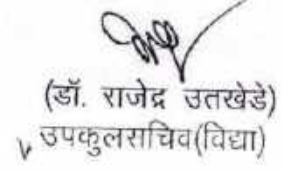 (डॉ. राजेंद्र उतखेडे)
उपकुलसचिव(विद्या)